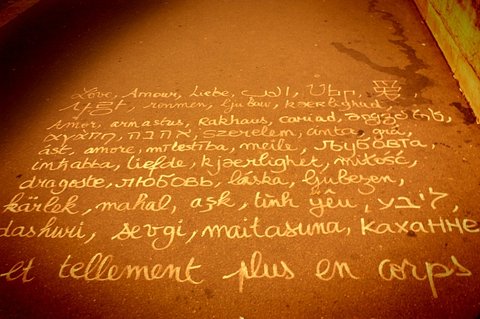 Love, Amour, Liebe, الحب, Սեր, 爱,
사랑, ronmen, ljubav, kærlighed,
Amor, armastus, Rakkaus, cariad,
אהבה, szerelem, ánta, grá,
ást, amore, meile, љубовта,
imħabba, liefde, kjærlighet, miłość,
dragoste, любовь, láska, ljubezen,
kärlek, mahal, aşk, tình yêu, ליבע,
dashuri, sevgi, maitasuna, каханне
et tellement plus en corps